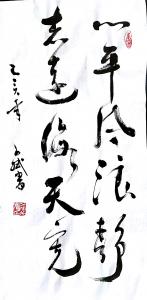 心平浪静
志远海天宽
亥年
斌书